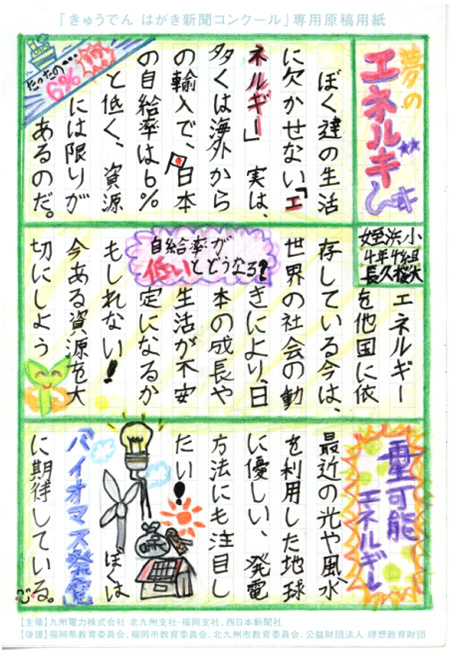 「きゅうでん はがき新聞コンクール」専用原稿用紙
夢の
エネルギー
ぼく達の生活
に欠かせない「エ
ネルギー」実は、
多くは海外から
の輸入で、日本
の自給率は6%
と低く、資源
には限りが
あるのだ。
たったの…
6%
小浜姪
4年4組
エネルギー
を他国に依
存している今は、
世界の社会の動
きにより、日
本の成長や
生活が不安
定になるか
もしれない!
今ある資源を大
切にしよう
自給率が
低いとどうなる?
再生可能
エネルギー
最近の光や風水
を利用した地球
に優しい、発電
方法にも注目し
たい!
ぼくは
バイオマス発電
に期待している。
【主催】九州電力株式会社 北九州支社・福岡支社、西日本新聞社
【後援】福岡県教育委員会、福岡市教育委員会、北九州市教育委員会、公益財団法人 理想教育財団